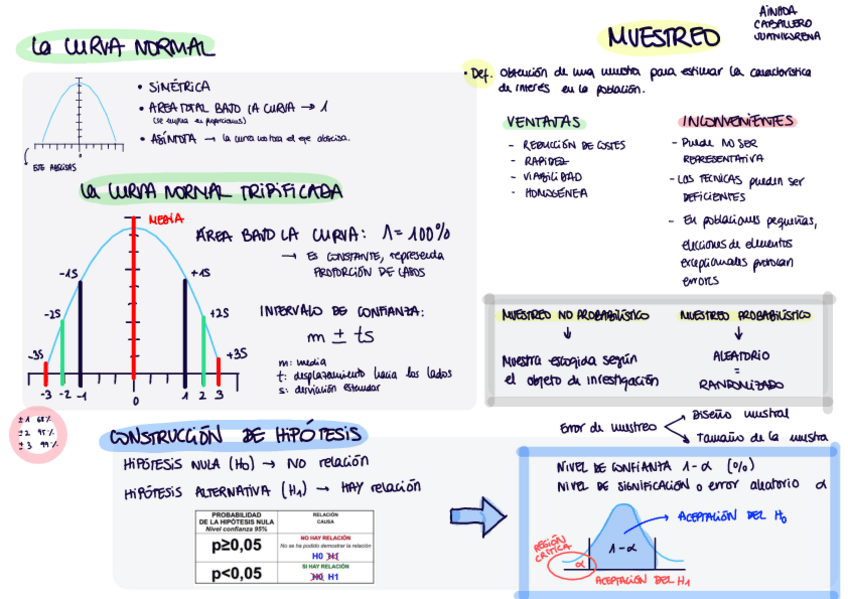 La CURVA NORMAL
• SIMÉTRICA
• AREA TOTAL BAJO LA CURVA → 1
• ASÍNTOTA → la curva no toca el eje abscisa.
0
La CURVA NORMAL TIPIFICADA
MEDIA
ÁREA BAJO LA CURVA: 1 = 100%
→ ES CONSTANTE, representa
PROPORCIÓN DE CASOS
-1S
+1S
-2S
+2S
-3S
+3S
-3 -2 -1 0 1 2 3
INTERVALO DE CONFIANZA:
m ± ts
m: media
t: desplazamiento hacia los lados
s: desviación estandar
± 1 68%
± 2 95%
± 3 99%
AINHOA
CABALLERO
MUESTREO
• Def. Obtención de una muestra para estimar la característica
de interés en la población.
VENTAJAS
- REDUCCIÓN DE COSTES
- RAPIDEZ
- VIABILIDAD
- HOMOGÉNEA
INCONVENIENTES
- Puede NO SER
REPRESENTATIVA
- Las TÉCNICAS pueden SER
DEFICIENTES
- En poblaciones pequeñas,
elecciones de elementos
excepcionales provocan
errores
MUESTREO NO PROBABILÍSTICO
↓
Muestra escogida según
el objeto de investigación
MUESTREO PROBABILÍSTICO
↓
ALEATORIO
=
RANDOMIZADO
Error de muestreo
Diseño muestral
Tamaño de la muestra
CONSTRUCCIÓN DE HIPÓTESIS
HIPÓTESIS NULA (H0) → NO relación
HIPÓTESIS ALTERNATIVA (H1) → HAY relación
PROBABILIDAD
DE LA HIPÓTESIS NULA
Nivel confianza 95%
RELACIÓN
CAUSA
p≥0,05
NO HAY RELACIÓN
No se ha podido demostrar la relación
H0 H1
p<0,05
SI HAY RELACIÓN
H0 H1
NIVEL DE CONFIANZA 1-α (%)
NIVEL DE SIGNIFICACIÓN o error aleatorio α
ACEPTACIÓN DEL H0
1-α
REGIÓN
CRÍTICA
α
ACEPTACIÓN DEL H1